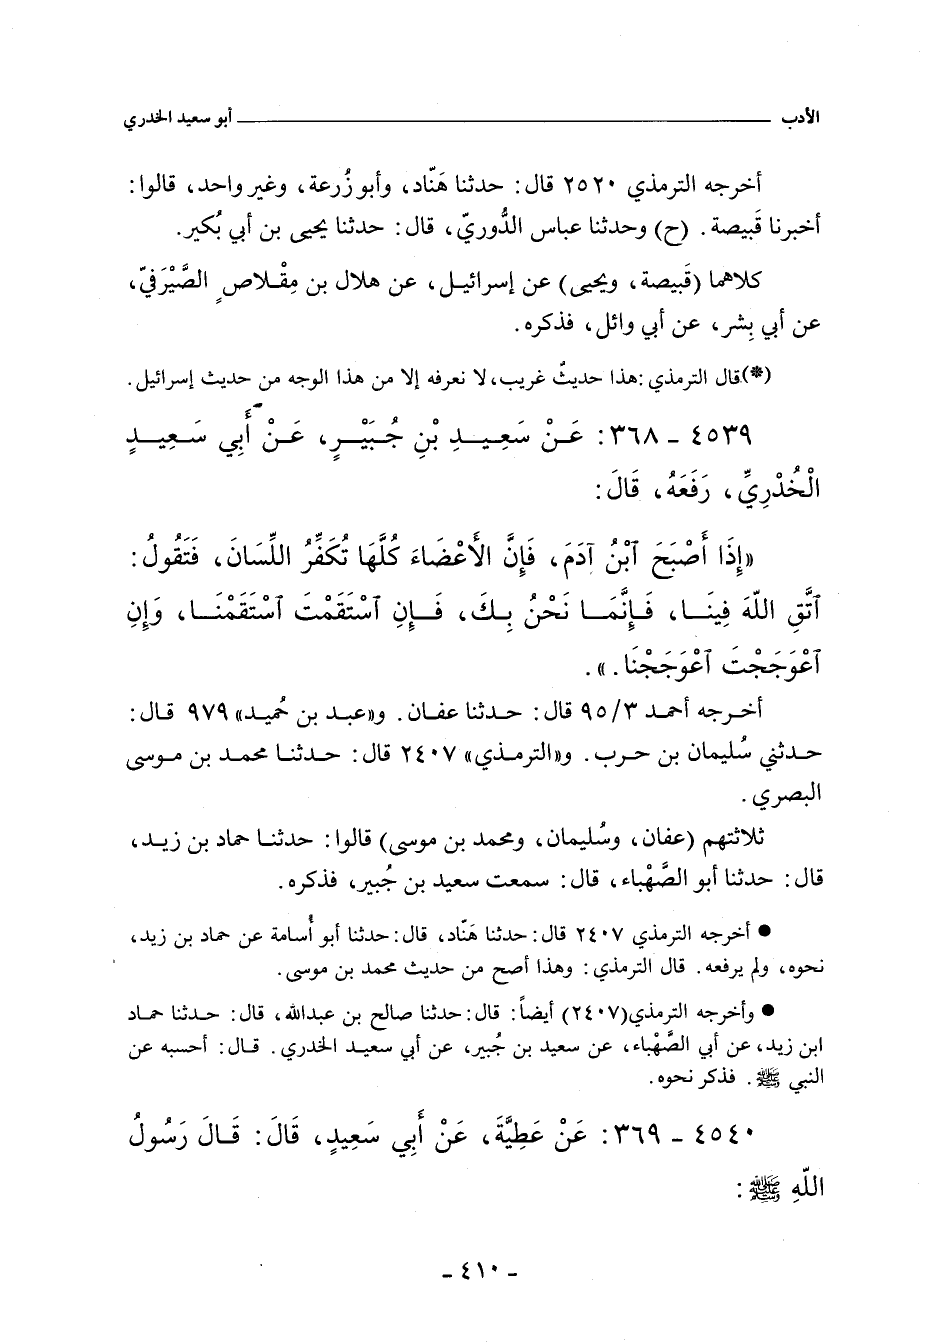 الأدب ــــــــ أبو سعيد الخدري
أخرجه الترمذي ٢٥٢٠ قال: حدثنا هَنّاد، وأبو زُرعة، وغير واحد، قالوا:
أخبرنا قَبيصة. (ح) وحدثنا عباس الدُّوريّ، قال: حدثنا يحيى بن أبي بُكير.
كلاهما (قَبيصة، ويحيى) عن إسرائيل، عن هلال بن مِقْلاصٍ الصَّيْرَفيّ،
عن أبي بِشر، عن أبي وائل، فذكره.
(*) قال الترمذي: هذا حديثٌ غريب، لا نعرفه إلا من هذا الوجه من حديث إسرائيل.
٤٥٣٩ - ٣٦٨: عَنْ سَعِيدِ بْنِ جُبَيْرٍ، عَنْ أَبِي سَعِيدٍ
الْخُدْرِيِّ، رَفَعَهُ، قَالَ:
«إِذَا أَصْبَحَ ٱبْنُ آدَمَ، فَإِنَّ الأَعْضَاءَ كُلَّهَا تُكَفِّرُ اللِّسَانَ، فَتَقُولُ:
ٱتَّقِ اللّهَ فِينَا، فَإِنَّمَا نَحْنُ بِكَ، فَإِنِ ٱسْتَقَمْتَ ٱسْتَقَمْنَا، وَإِنِ
ٱعْوَجَجْتَ ٱعْوَجَجْنَا.».
أخرجه أحمد ٩٥/٣ قال: حدثنا عفان. و«عبد بن حُميد» ٩٧٩ قال:
حدثني سُليمان بن حرب. و«الترمذي» ٢٤٠٧ قال: حدثنا محمد بن موسى
البصري.
ثلاثتهم (عفان، وسُليمان، ومحمد بن موسى) قالوا: حدثنا حماد بن زيد،
قال: حدثنا أبو الصَّهْباء، قال: سمعت سعيد بن جُبير، فذكره.
● أخرجه الترمذي ٢٤٠٧ قال: حدثنا هَنّاد، قال: حدثنا أبو أُسامة عن حماد بن زيد،
نحوه، ولم يرفعه. قال الترمذي: وهذا أصح من حديث محمد بن موسى.
● وأخرجه الترمذي(٢٤٠٧) أيضاً: قال: حدثنا صالح بن عبدالله، قال: حدثنا حماد
ابن زيد، عن أبي الصَّهْباء، عن سعيد بن جُبير، عن أبي سعيد الخدري. قال: أحسبه عن
النبي ﷺ. فذكر نحوه.
٤٥٤٠ - ٣٦٩: عَنْ عَطِيَّةَ، عَنْ أَبِي سَعِيدٍ، قَالَ: قَالَ رَسُولُ
اللّهِ ﷺ:
- ٤١٠ -